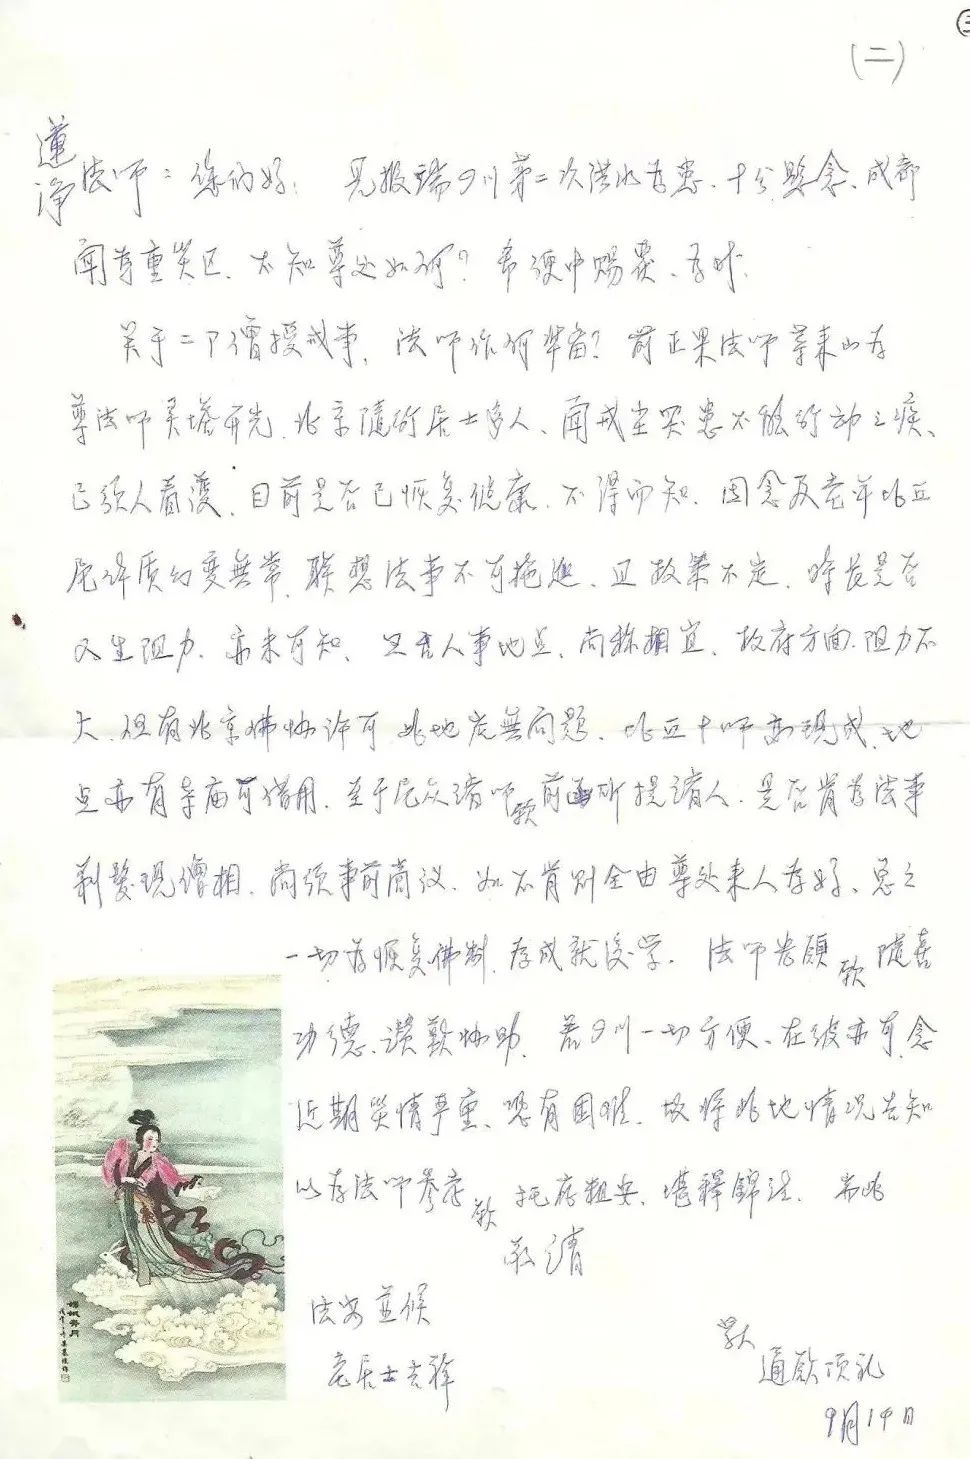 (二)
蓮净法师：您们好！见报端四川第二次洪水为患、十分懸念、成都
闻为重災区、不知尊处如何？希便中赐覆、为盼、
关于二下僧授戒事、法师作何準备？前正果法师等来山为
尊法师灵塔开光、北京随行居士多人、闻戒尘哭患不能行动之疾、
已须人看護、目前是否已恢复健康、不得而知、因念及老年比丘
尼体质幻变無常、联想法事不可拖迟、且政策不定、時长是否
又生阻力、亦未可知、只言人事地点、尚称相宜、政府方面阻力不
大、但有北京佛协许可此地庶無问题、比丘十师亦现成、地
点亦有寺庙可借用、至于尼众请师款前函所提请人、是否肯为法事
剃髮现僧相、尚须事前商议、如不肯则全由尊处来人为好、总之
一切为恢复佛制、为成就後学、法师岩願款随喜
功德、讚歎协助、若四川一切方便、在彼亦可、念
近期災情严重、恐有困难、故将此地情况告知
以为法师参考款托庇粗安、堪釋錦注、耑此
敬请
法安並候
老居士吉祥
學人
通願顶礼
9月14日
嫦娥奔月